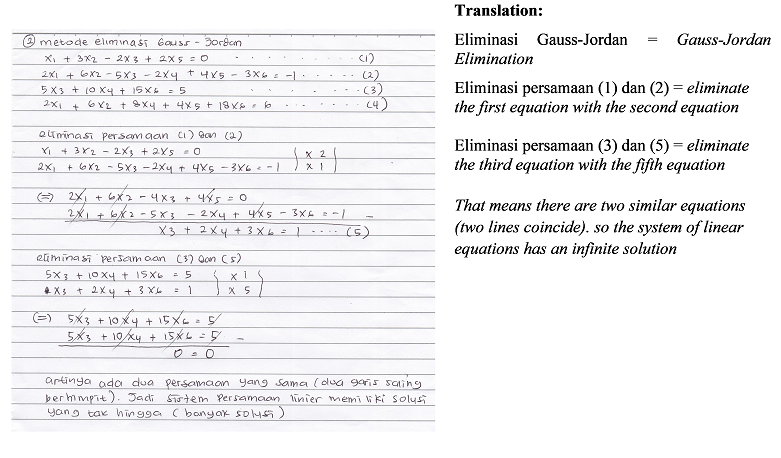 ② metode eliminasi Gauss - Jordan
x₁ + 3x₂ - 2x₃ + 2x₅ = 0 ........ (1)
2x₁ + 6x₂ - 5x₃ - 2x₄ + 4x₅ - 3x₆ = -1 ..... (2)
5x₃ + 10x₄ + 15x₆ = 5 ........ (3)
2x₁ + 6x₂ + 8x₄ + 4x₅ + 18x₆ = 6 ...... (4)
eliminasi persamaan (1) dan (2)
x₁ + 3x₂ - 2x₃ + 2x₅ = 0 | x 2 |
2x₁ + 6x₂ - 5x₃ - 2x₄ + 4x₅ - 3x₆ = -1 | x 1 |
(=) 2x₁ + 6x₂ - 4x₃ + 4x₅ = 0
2x₁ + 6x₂ - 5x₃ - 2x₄ + 4x₅ - 3x₆ = -1 -
x₃ + 2x₄ + 3x₆ = 1 .... (5)
eliminasi persamaan (3) dan (5)
5x₃ + 10x₄ + 15x₆ = 5 | x 1 |
x₃ + 2x₄ + 3x₆ = 1 | x 5 |
(=) 5x₃ + 10x₄ + 15x₆ = 5
5x₃ + 10x₄ + 15x₆ = 5 -
0 = 0
artinya ada dua persamaan yang sama (dua garis saling
berhimpit). Jadi sistem persamaan linier memiliki solusi
yang tak hingga (banyak solusi)
Translation:
Eliminasi Gauss-Jordan = Gauss-Jordan
Elimination
Eliminasi persamaan (1) dan (2) = eliminate
the first equation with the second equation
Eliminasi persamaan (3) dan (5) = eliminate
the third equation with the fifth equation
That means there are two similar equations
(two lines coincide). so the system of linear
equations has an infinite solution